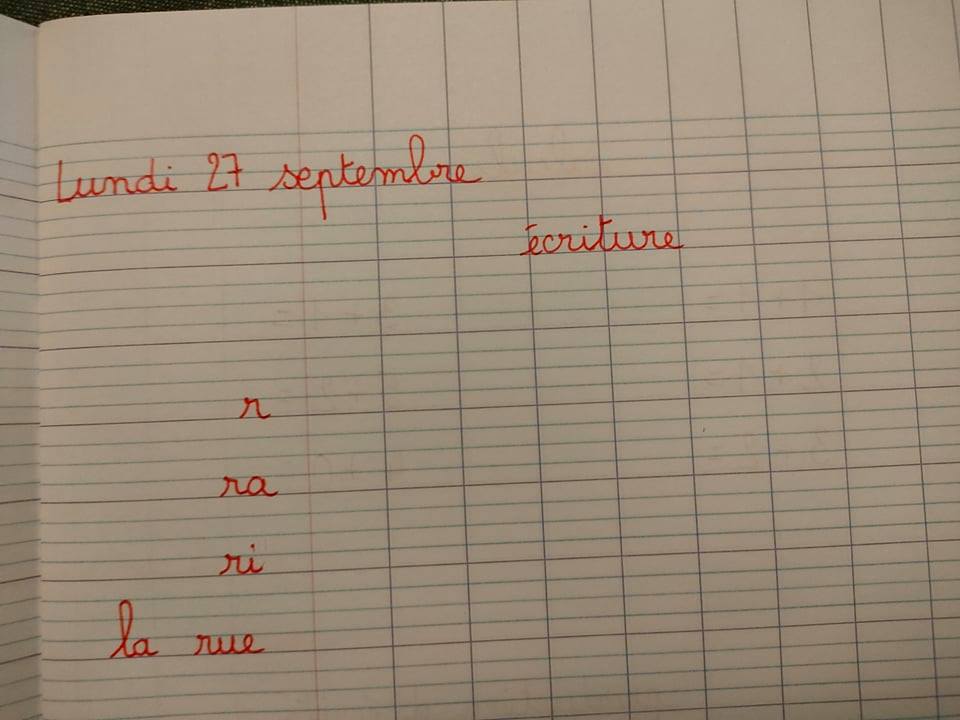 Lundi 27 septembre
écriture
r
ra
ri
la rue